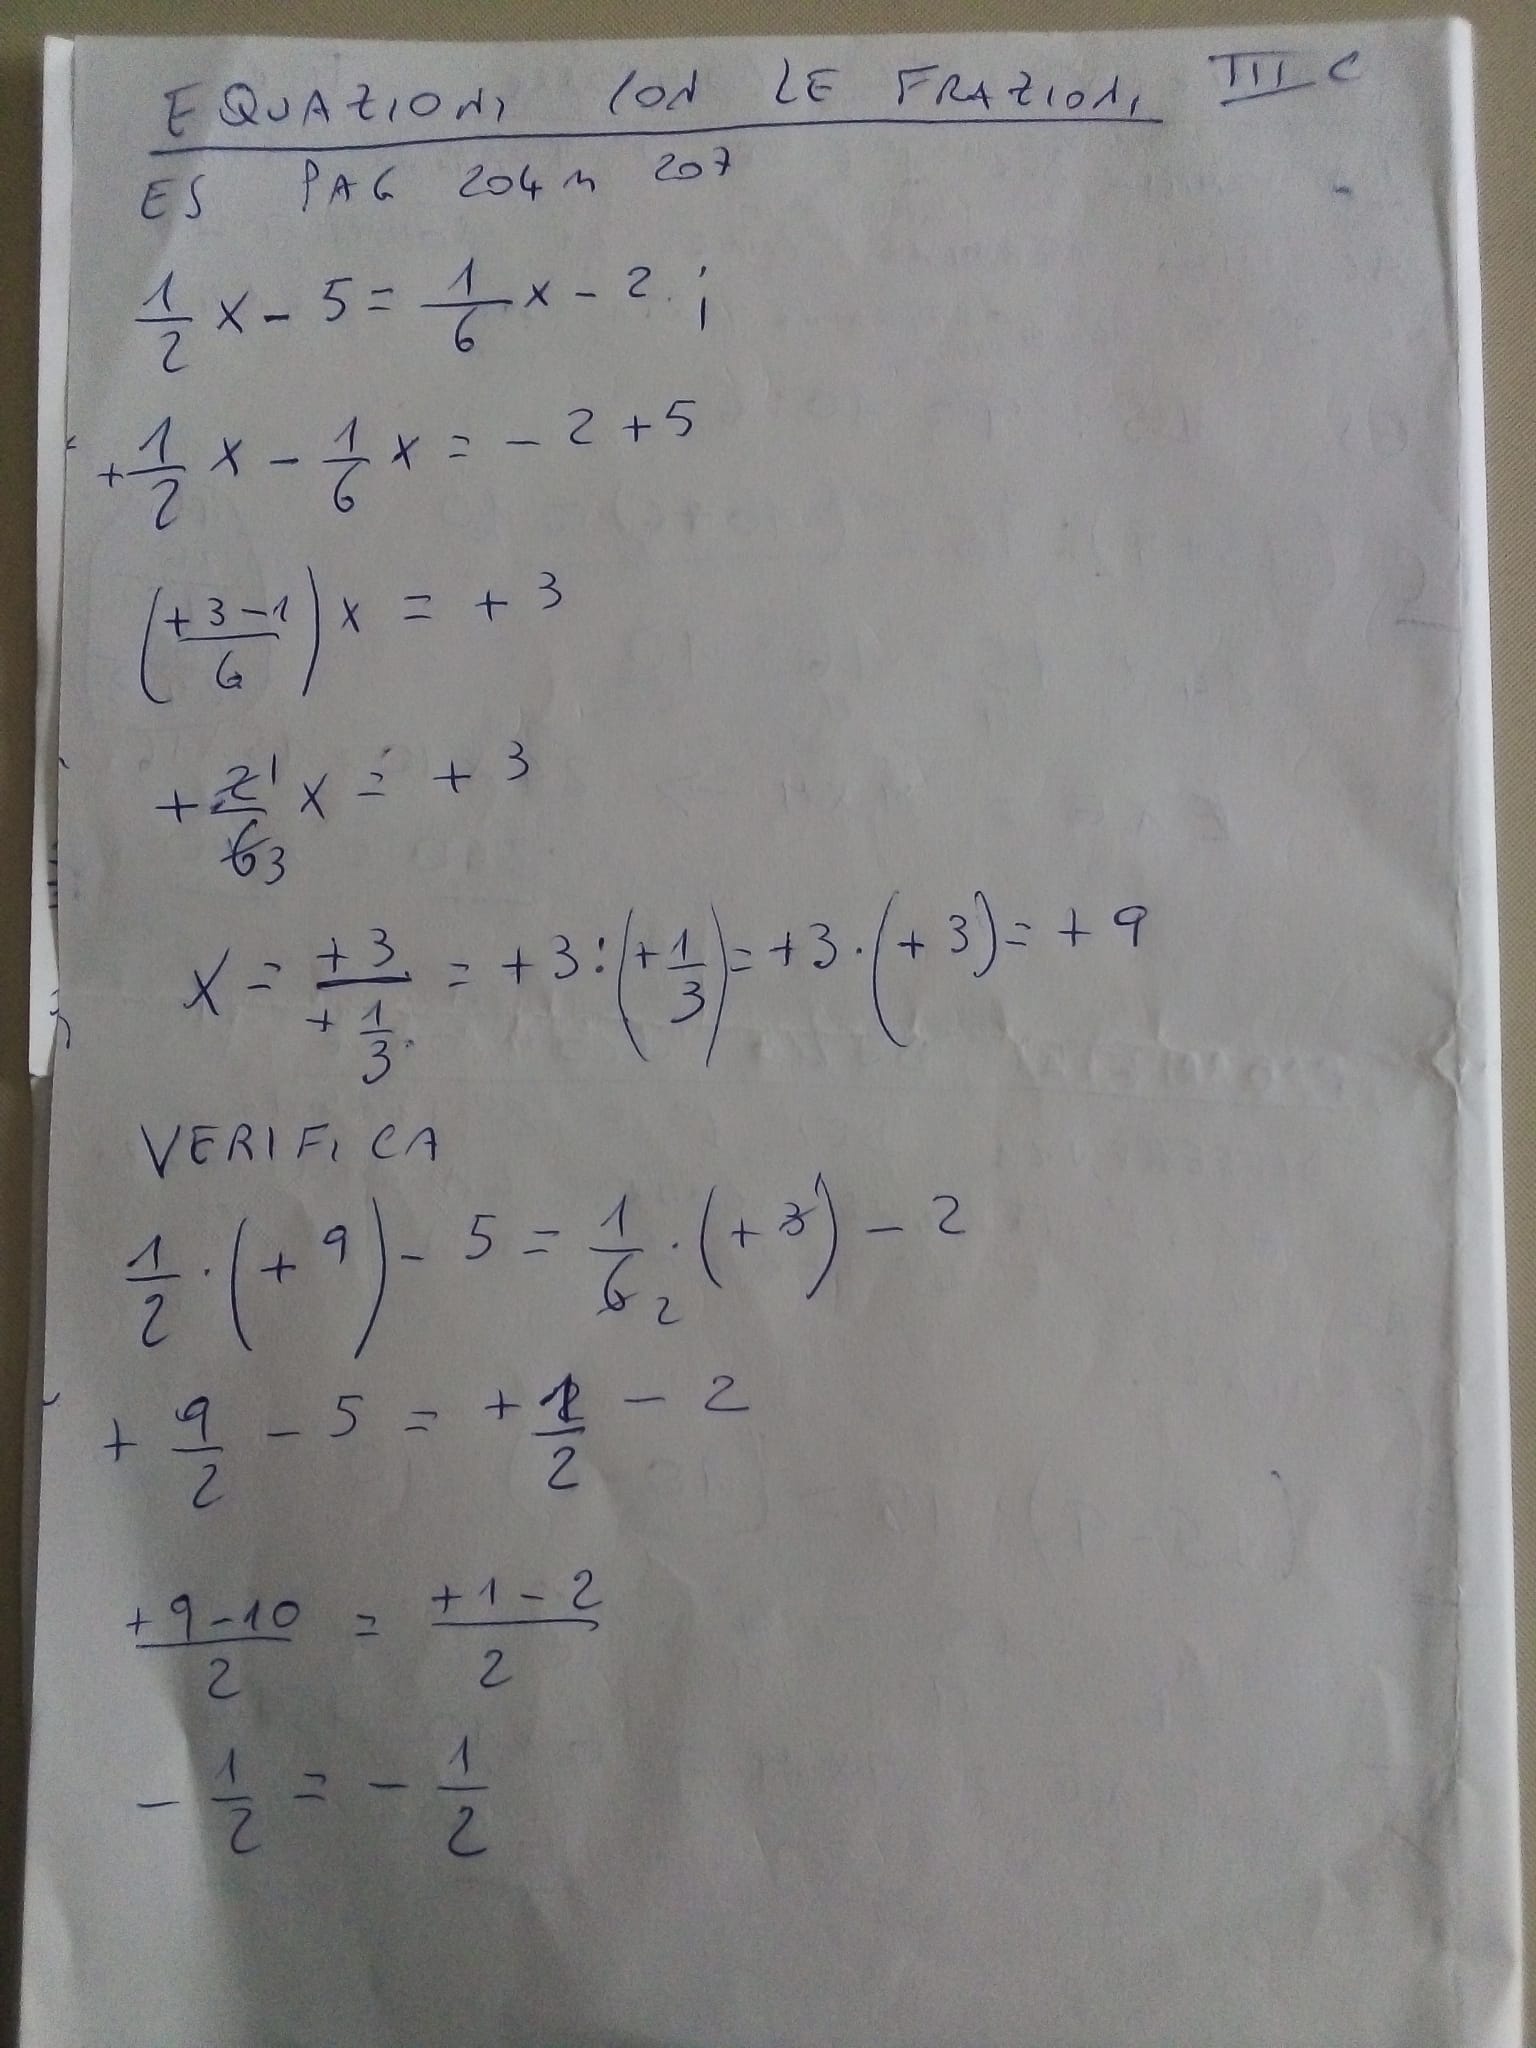 EQUAZIONI CON LE FRAZIONI III C
ES PAG 204 n 207
1/2 x - 5 = 1/6 x - 2 ;
+ 1/2 x - 1/6 x = - 2 + 5
(+3-1/6) x = + 3
+ 2 1/6 3 x = + 3
x = +3/+1/3 = +3 : (+1/3) = +3 · (+3) = + 9
VERIFICA
1/2 · (+9) - 5 = 1/6 2 · (+3 1) - 2
+ 9/2 - 5 = + 1/2 - 2
+9-10/2 = +1-2/2
- 1/2 = - 1/2